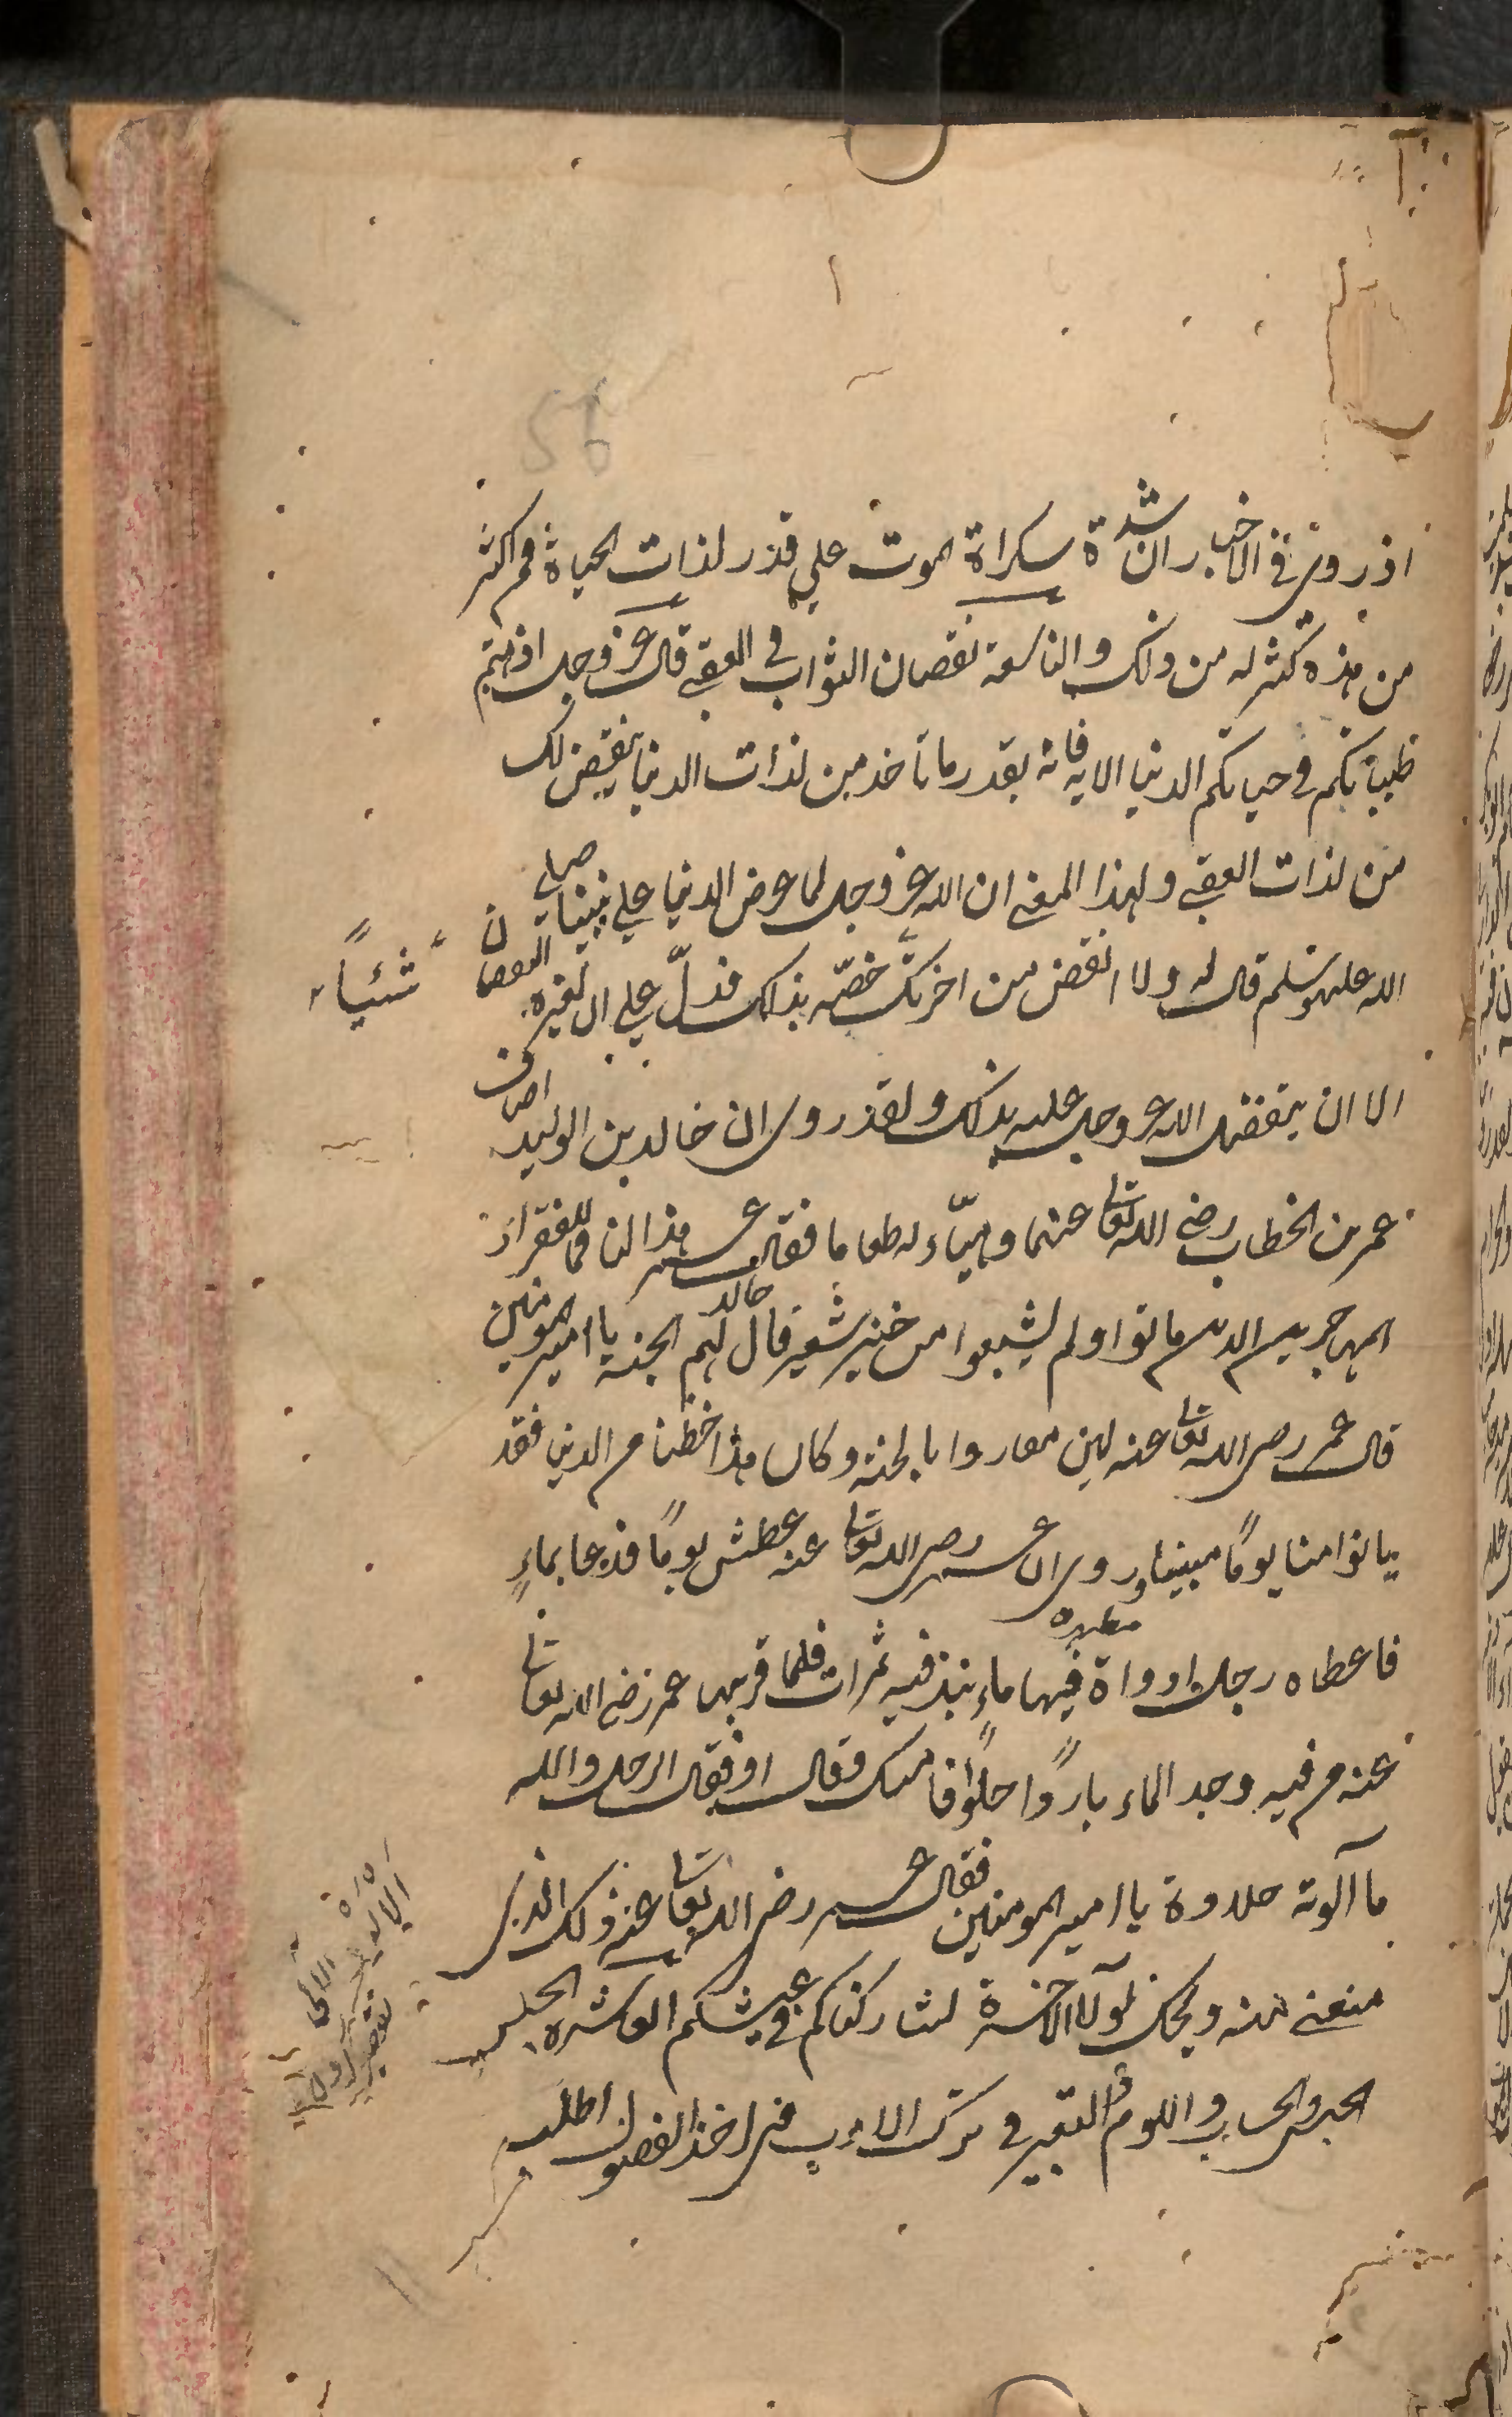 56
اذ روى في الاخبار ان شدة سكراة الموت على قدر لذات الحياة فمن اكثر
من هذه كثر له من ذلك والتاسعة نقصان الثواب في العقبى قال عز وجل اذهبتم
طيباتكم في حياتكم الدنيا الايه فانه بقدر ما تاخذ من لذات الدنيا ينقص لك
من لذات العقبى ولهذا المعنى ان الله عز وجل لما عرض الدنيا على نبينا صلى
الله عليه وسلم قال له ولا انقص من اخرتك خصّه بذلك فدلّ على ان لغيره النقصان
شيئاً
الا ان يتفضل الله عز وجل عليه بذلك ولقد روى ان خالد بن الوليد اضاف
عمر بن الخطاب رضى الله تعالى عنهما وهيّاء له طعاما فقال عمر هذا لنا فما للفقراء
المهاجرين الذين ماتوا ولم يشبعوا من خبز شعير قال خالد لهم الجنة يا امير المومنين
قال عمر رضى الله تعالى عنه لين فازوا بالجنة وكان هذا حظنا من الدنيا فقد
باتوا منا بوناً مبينا وروى ان عمر رضى الله تعالى عنه عطش يوماً فدعا بماءٍ
فاعطاه رجل اداوة فيها ماءٍ نبذ فيه تمرات فلما قربها عمر رضى الله تعالى
عنه من فيه وجد الماء بارداً حلواً فامسك وقال اوه فقال الرجل والله
ما آلوته حلاوة يا امير المومنين فقال عمر رضى الله تعالى عنه ذلك الذى
منعني منه ويحك لولا الاخرة لشاركناكم في عيشكم العاشرة
الحبس والحساب واللوم والتعيير في ترك الادب في اخذ الفضول